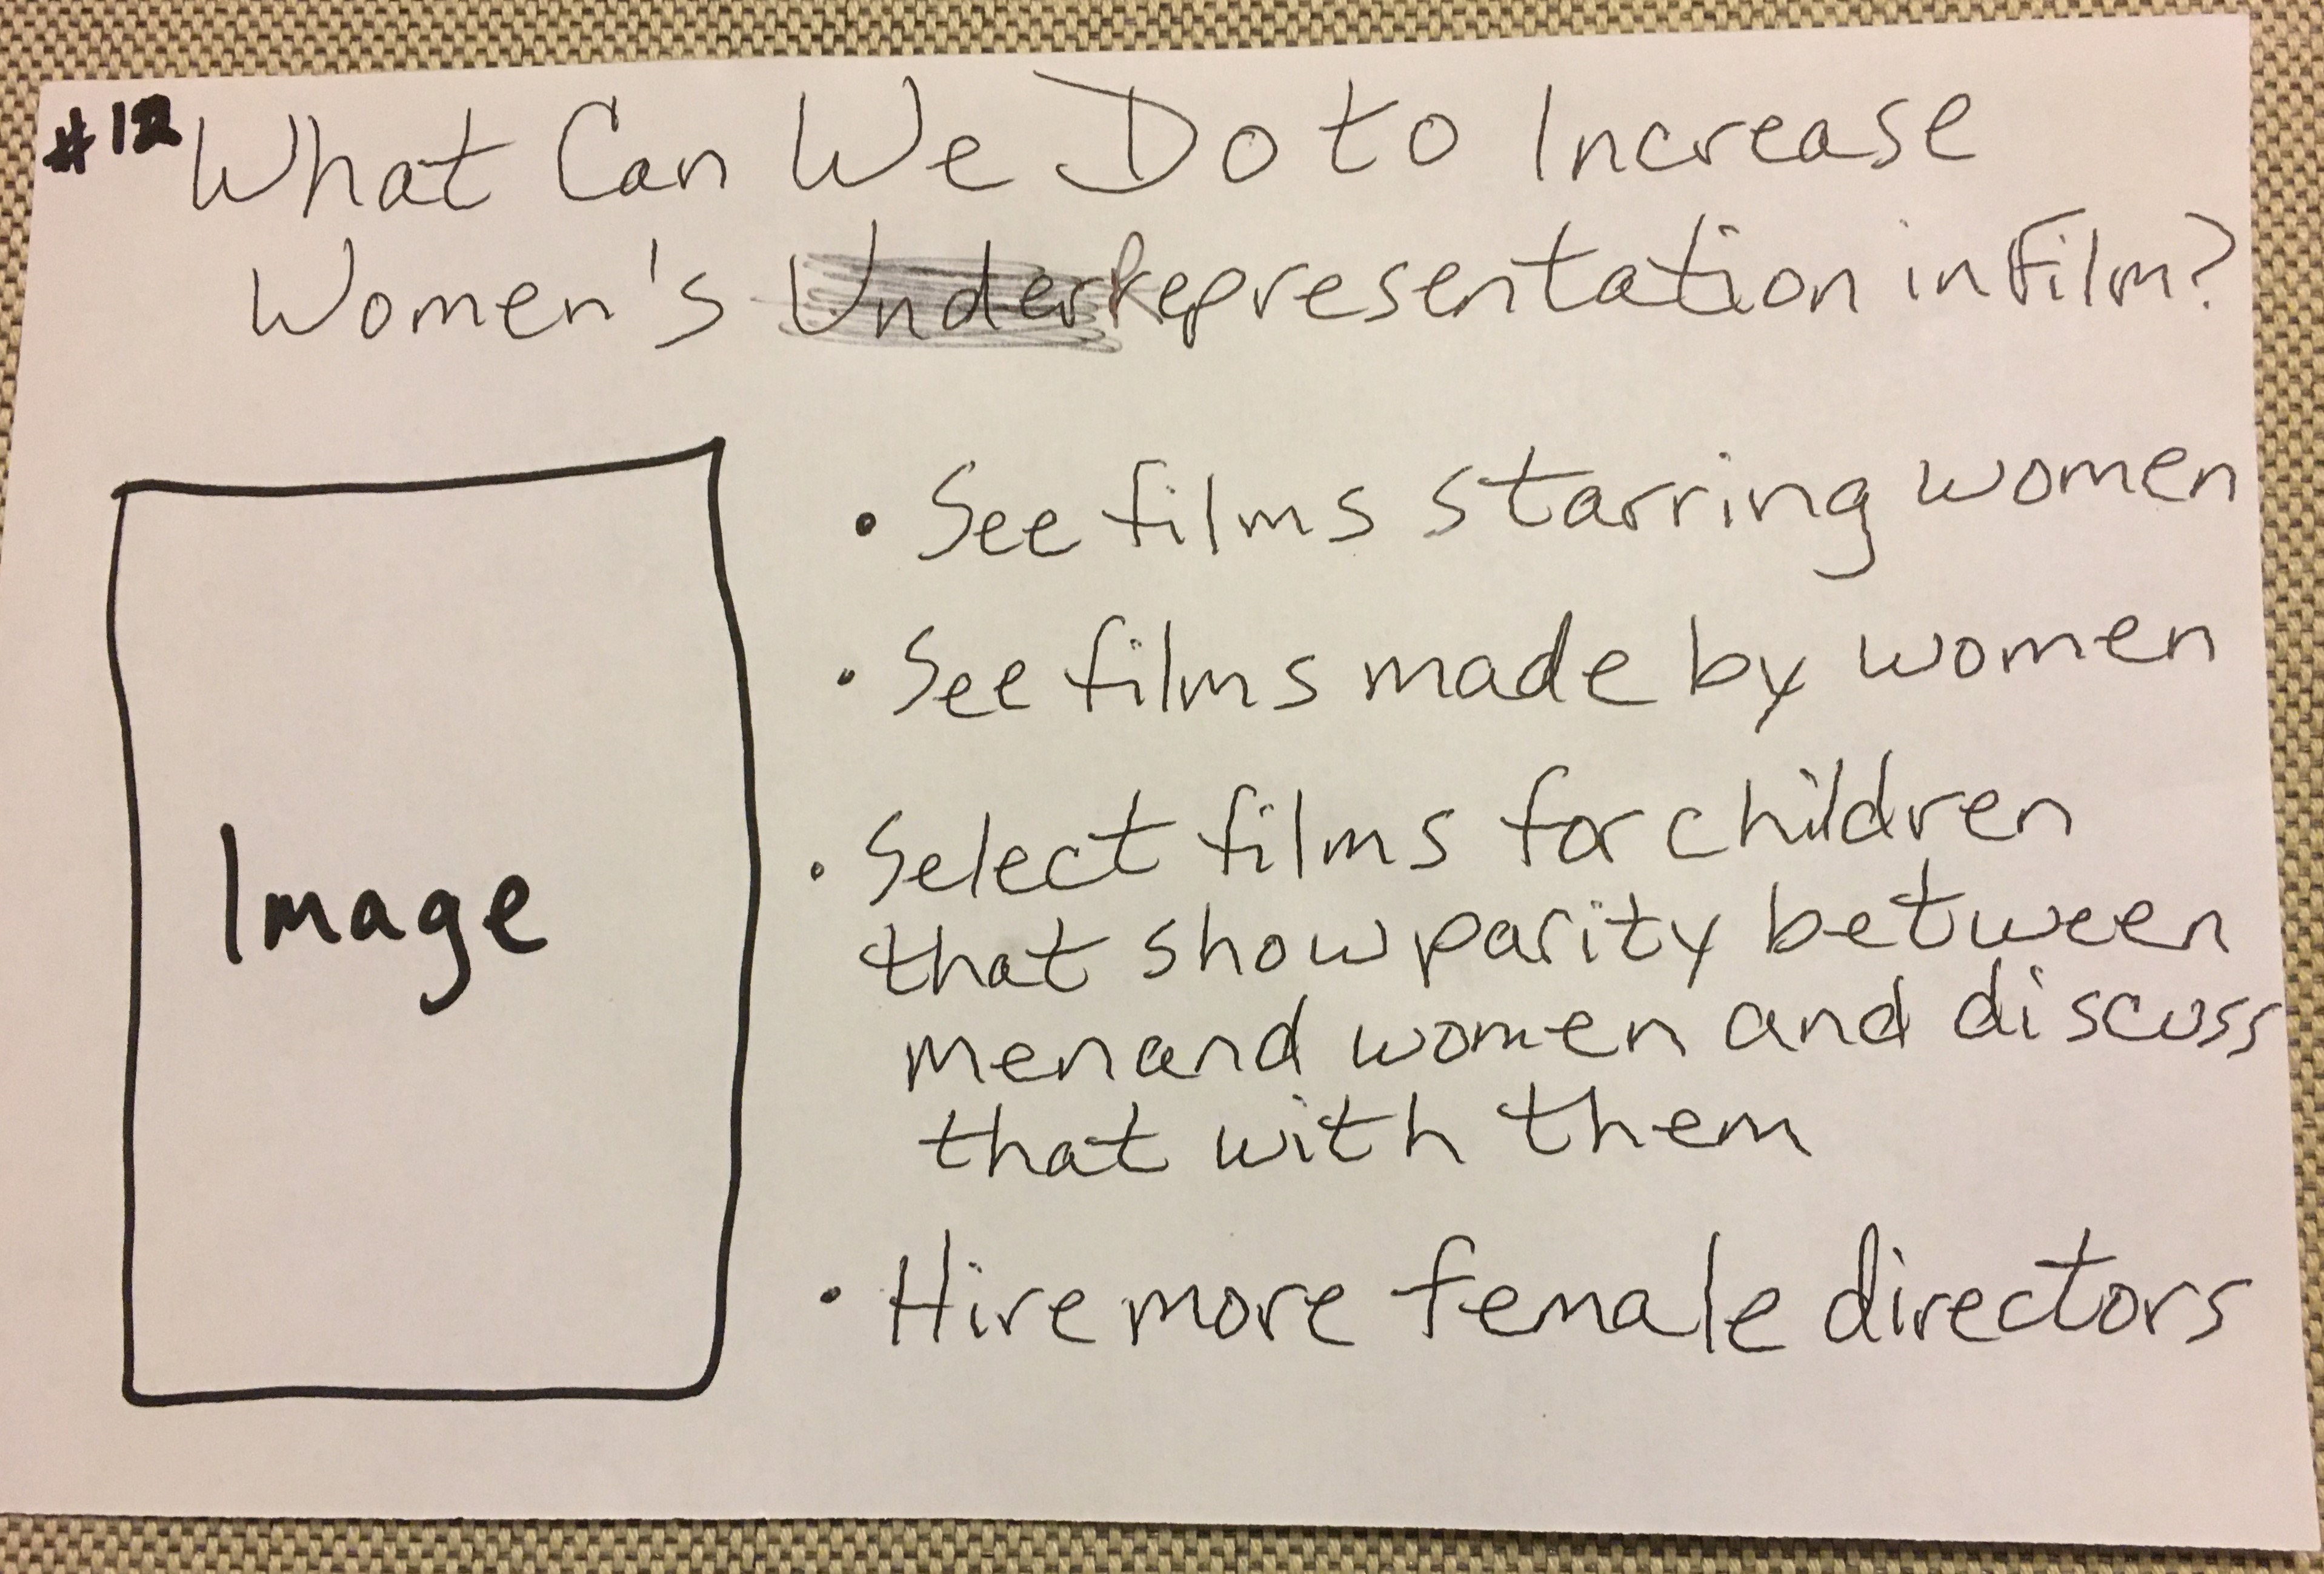 #12 What Can We Do to Increase
Women's Under Representation in Film?
Image
• See films starring women
• See films made by women
• Select films for children
that show parity between
men and women and discuss
that with them
• Hire more female directors